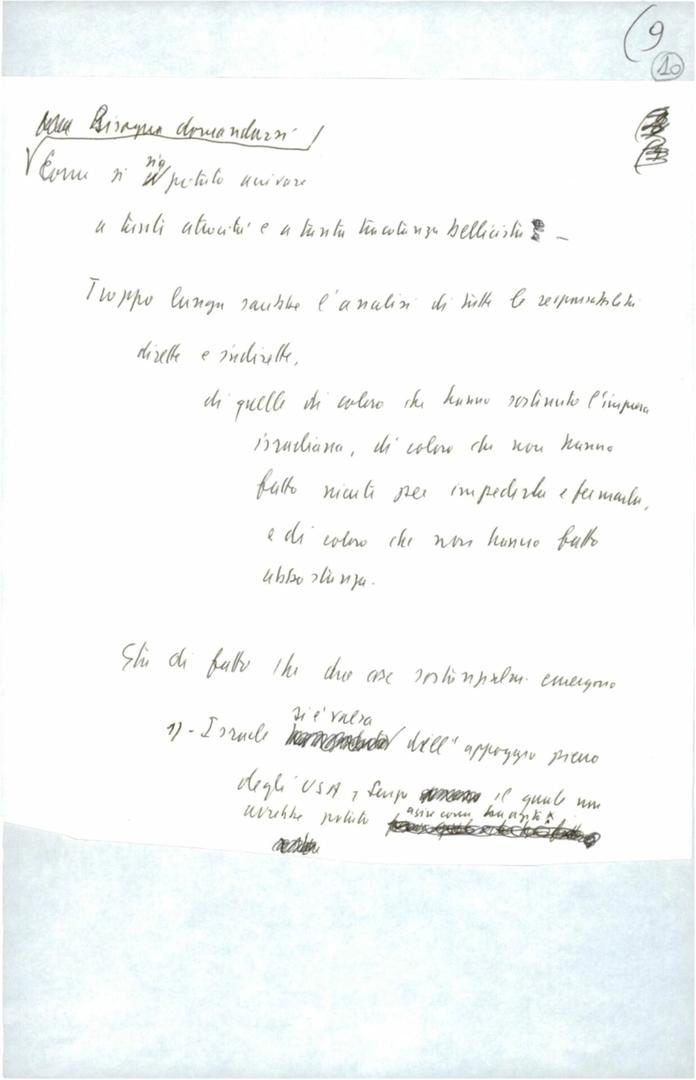 9
10
Bisogna domandarsi
Come si sia potuto arrivare
a tante atrocità e a tanta tracotanza bellicista –
Troppo lunga sarebbe l'analisi di tutte le responsabilità
dirette e indirette,
di quelle di coloro che hanno sostenuto l'impresa
israeliana, di coloro che non hanno
fatto niente per impedirla e fermarla,
e di coloro che non hanno fatto
abbastanza.
Sta di fatto che due cose emergono
1) - Israele si è valsa dell'appoggio pieno
degli USA, senza il quale non
avrebbe potuto agire come ha agito.